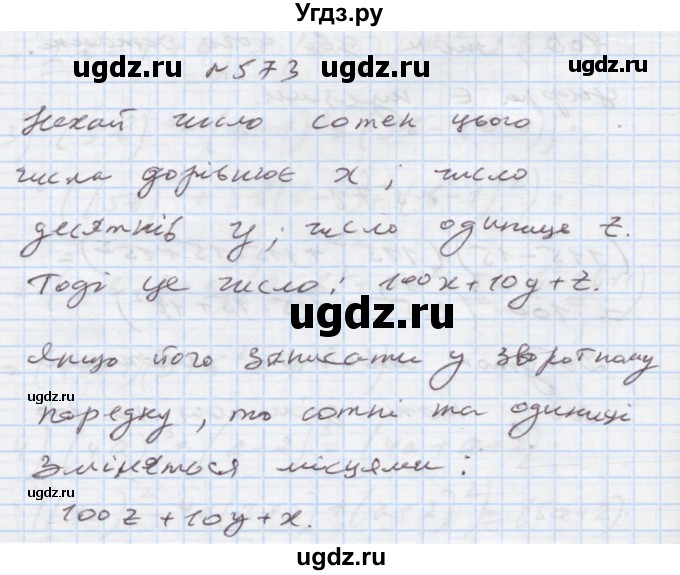 Угдз.ру
ugdz.ru ugdz.ru
№573
Нехай число сотен цього
ugdz.ru
числа дорівнює x; число
десятків y; число одиниць z.
ugdz.ru
Тоді це число: 100x+10y+z.
ugdz.ru
Якщо його записати у зворотному
порядку, то сотні та одиниці
зміняться місцями:
ugdz.ru
100z+10y+x.
ugdz.ru
ugdz.ru